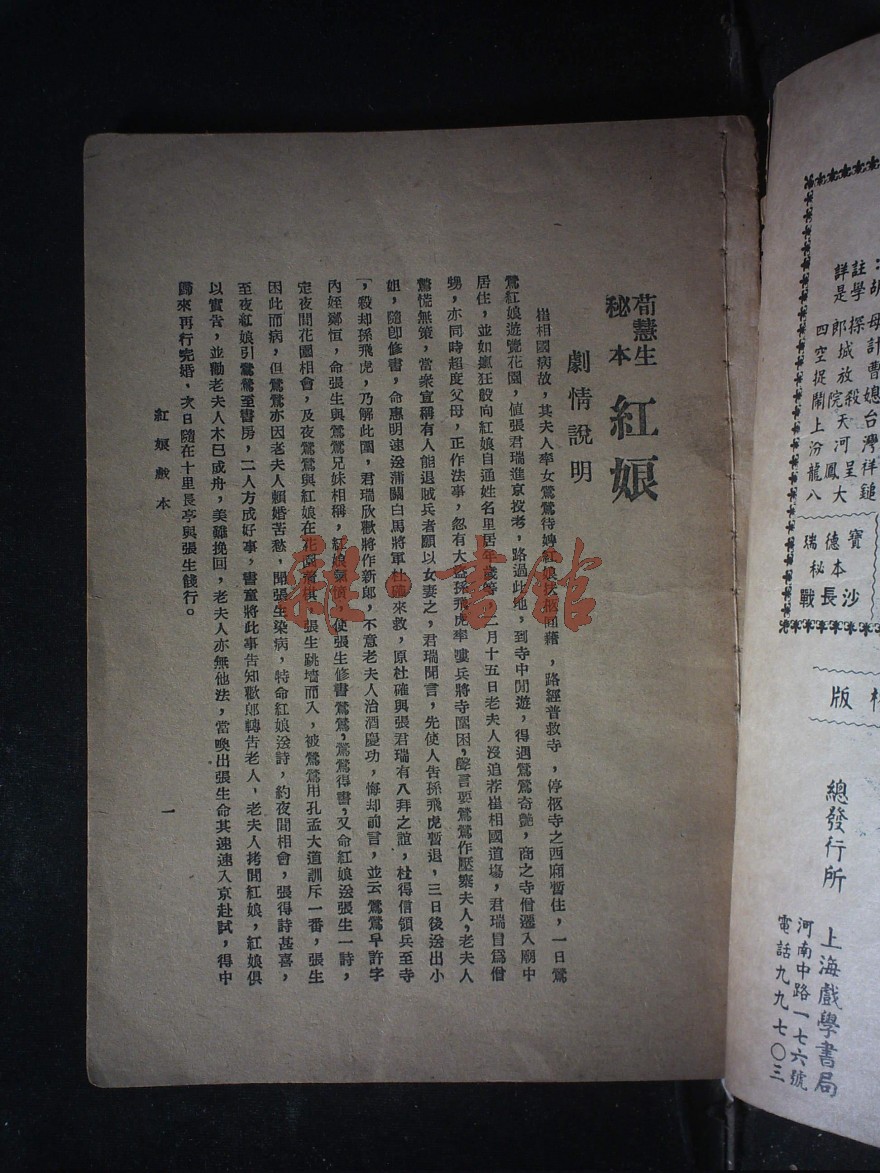 荀慧生
秘本
紅娘
劇情說明
崔相國病故，其夫人率女鶯鶯待婢紅娘扶柩回籍，路經普救寺，停柩寺之西廂暫住，一日鶯
鶯紅娘遊覽花園，值張君瑞進京投考，路過此地，到寺中閒遊，得遇鶯鶯奇艷，商之寺僧遷入廟中
居住，並如瘋狂般向紅娘自通姓名里居年歲等，二月十五日老夫人沒追荐崔相國道塲，君瑞冒爲僧
甥，亦同時超度父母，正作法事，忽有大盜孫飛虎率嘍兵將寺圍困，聲言要鶯鶯作壓寨夫人，老夫人
驚慌無策，當衆宣稱有人能退賊兵者願以女妻之，君瑞聞言，先使人告孫飛虎暫退，三日後送出小
姐，隨卽修書，命惠明速送蒲關白馬將軍杜確來救，原杜確與張君瑞有八拜之誼，杜得信領兵至寺
，殺却孫飛虎，乃解此圍，君瑞欣歡將作新郎，不意老夫人治酒慶功，悔却前言，並云鶯鶯早許字
內姪鄭恒，命張生與鶯鶯兄妹相稱，紅娘氣憤，使張生修書鶯鶯，鶯鶯得書，又命紅娘送張生一詩，
定夜間花園相會，及夜鶯鶯與紅娘在花園着棋，張生跳墻而入，被鶯鶯用孔孟大道訓斥一番，張生
因此而病，但鶯鶯亦因老夫人賴婚苦愁，聞張生染病，特命紅娘送詩，約夜間相會，張得詩甚喜，
至夜紅娘引鶯鶯至書房，二人方成好事，書童將此事告知歡郎轉告老人，老夫人拷問紅娘，紅娘俱
以實告，並勸老夫人木已成舟，美難挽回，老夫人亦無他法，當喚出張生命其速速入京赴試，得中
歸來再行完婚，次日隨在十里長亭與張生餞行。
紅娘戲本
一
雜·書館
註學探計曹總台
詳是郎城放殺天灣祥鎚
四空捉院河呈大
鬧上汾鳳龍八
寶德瑞
秘本
戰長沙
版
總發行所
上海戲學書局
河南中路一七六號
電話九九七〇三